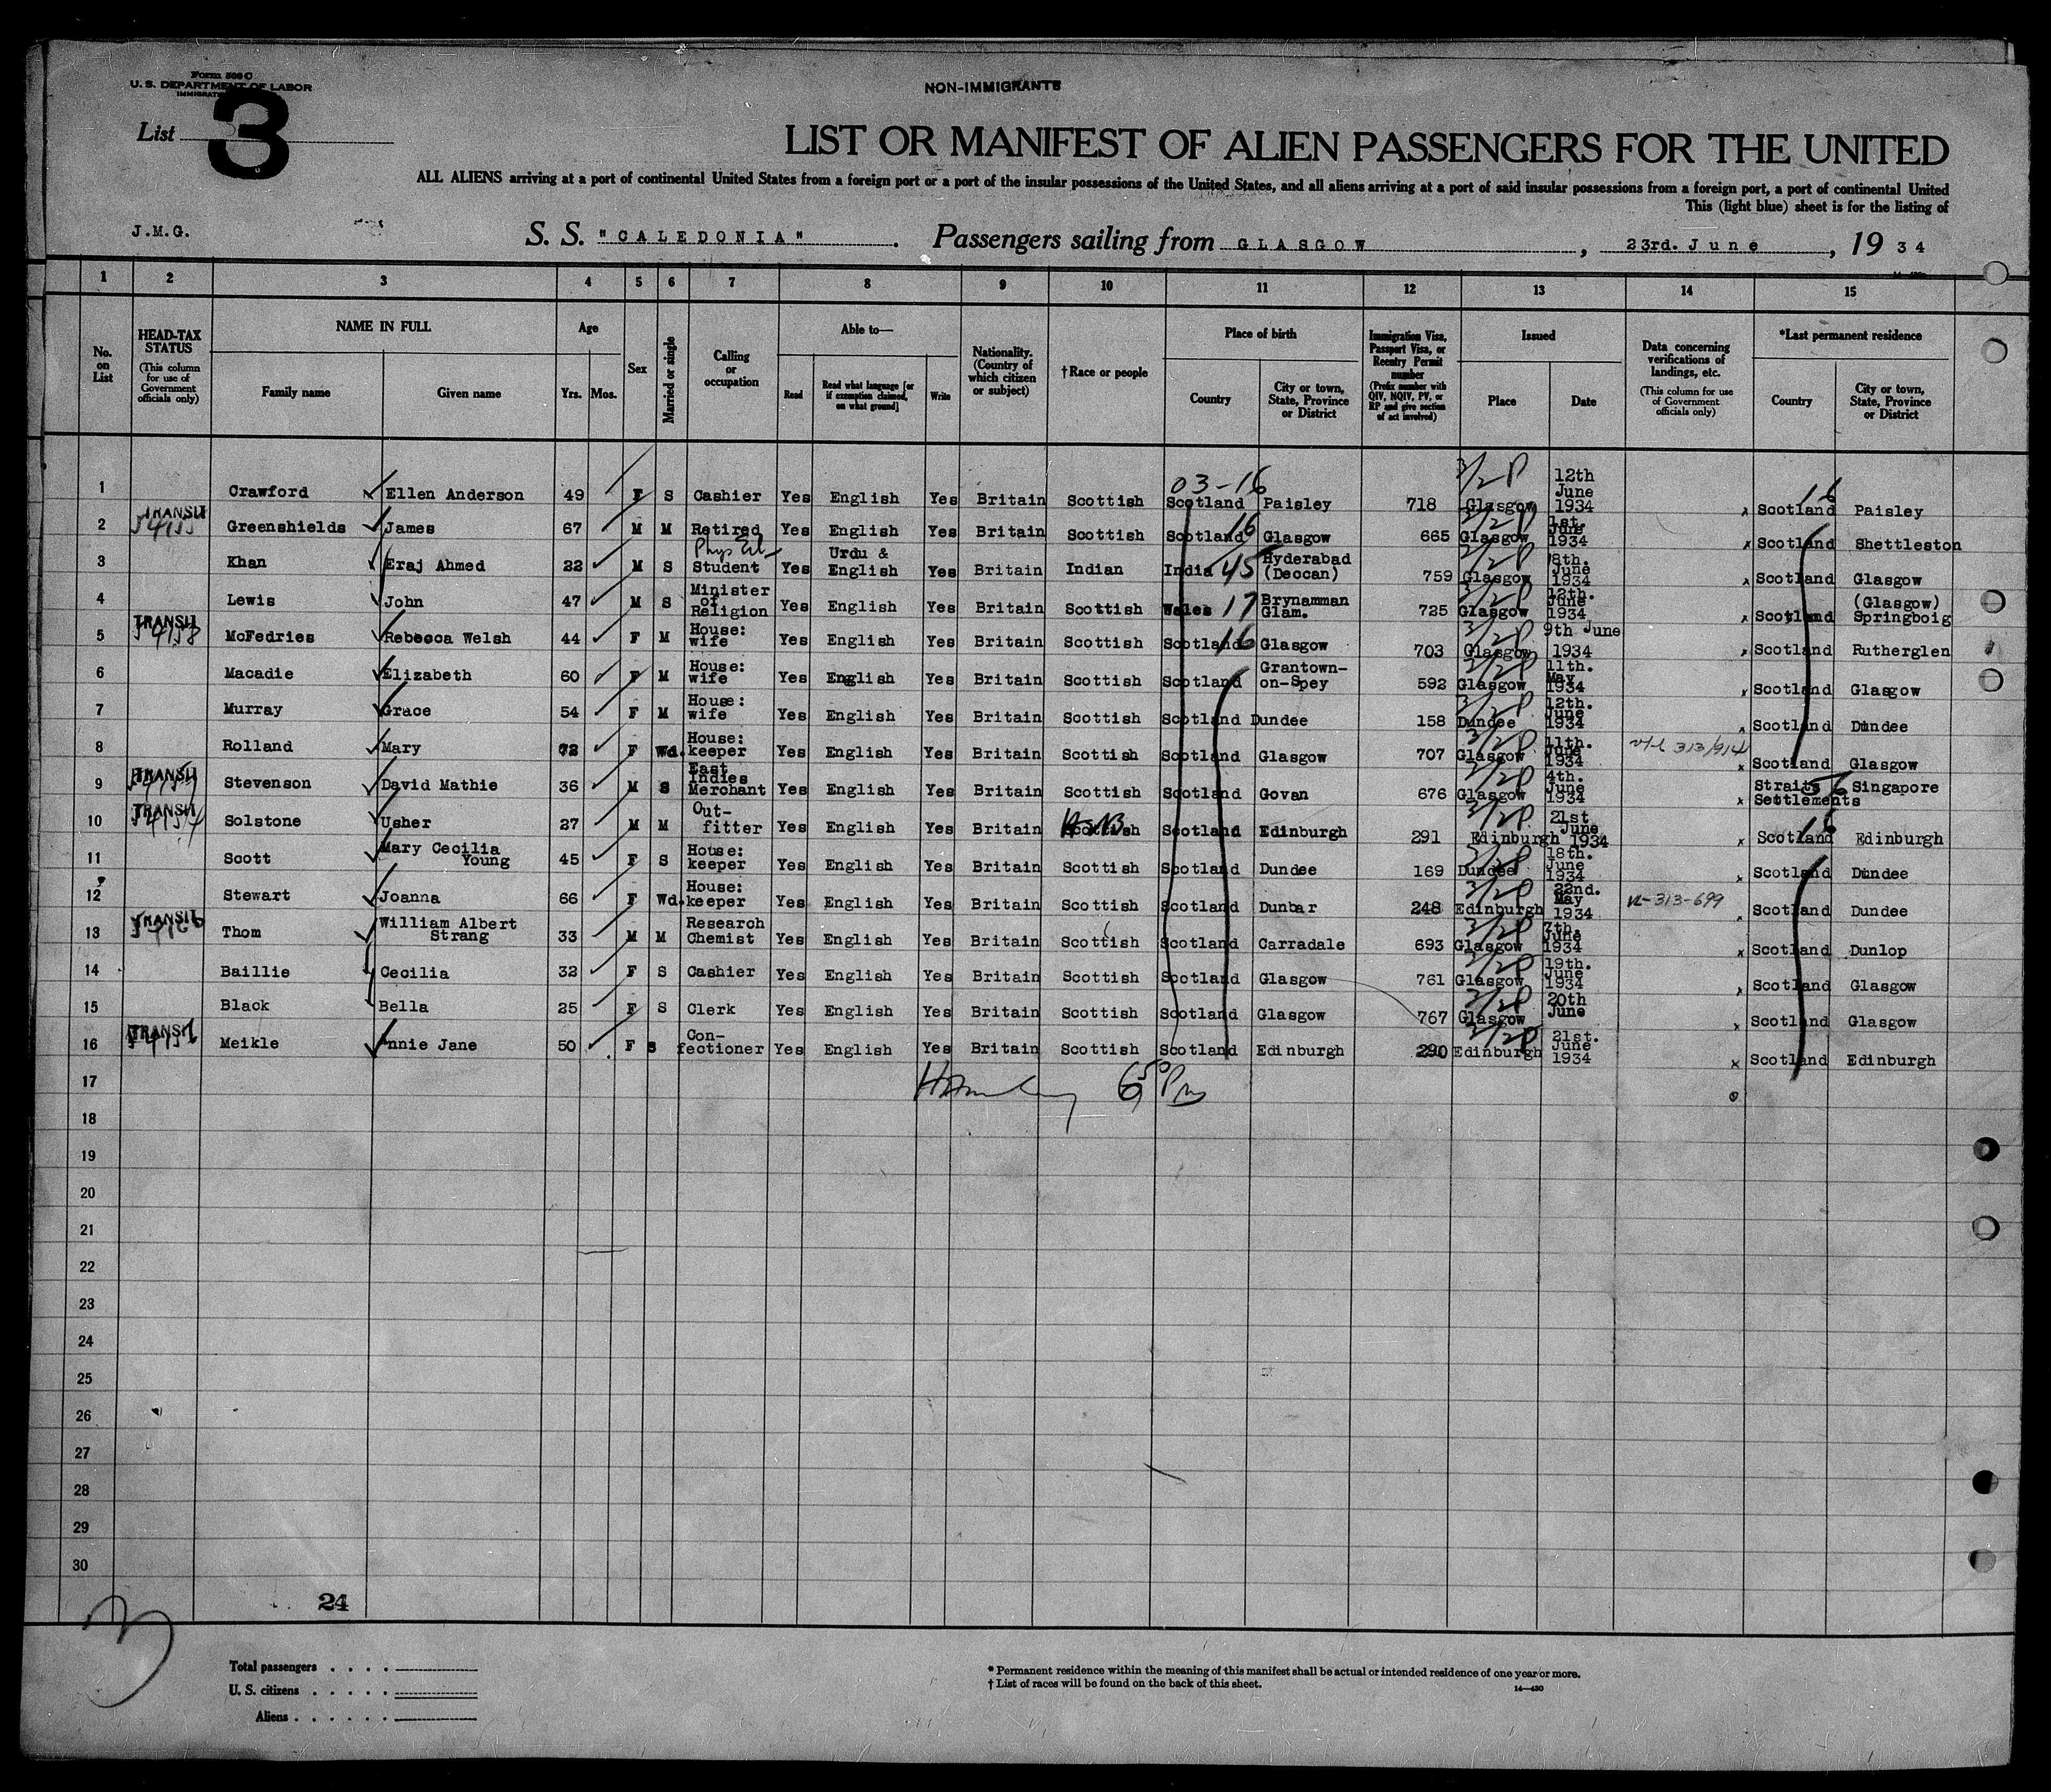 Form 500 C
U. S. DEPARTMENT OF LABOR
NON-IMMIGRANTS
List 3
LIST OR MANIFEST OF ALIEN PASSENGERS FOR THE UNITED
ALL ALIENS arriving at a port of continental United States from a foreign port or a port of the insular possessions of the United States, and all aliens arriving at a port of said insular possessions from a foreign port, a port of continental United
This (light blue) sheet is for the listing of
J.M.G.
S. S. "CALEDONIA" . Passengers sailing from GLASGOW , 23rd. June , 19 34
1 2 3 4 5 6 7 8 9 10 11 12 13 14 15
No. on List
HEAD-TAX STATUS (This column for use of Government officials only)
NAME IN FULL
Family name
Given name
Age
Yrs. Mos.
Sex
Married or single
Calling or occupation
Able to—
Read
Read what language [or if exemption claimed, on what ground]
Write
Nationality. (Country of which citizen or subject)
†Race or people
Place of birth
Country
City or town, State, Province or District
Immigration Visa, Passport Visa, or Reentry Permit number (Prefix number with QIV, NQIV, PV, or RP and give section of act involved)
Issued
Place
Date
Data concerning verifications of landings, etc. (This column for use of Government officials only)
*Last permanent residence
Country
City or town, State, Province or District
03-16
1 Crawford Ellen Anderson 49 F S Cashier Yes English Yes Britain Scottish Scotland Paisley 718 3/2P Glasgow 12th June 1934 x Scotland 16 Paisley
2 TRANSIT Greenshields James 67 M M Retired Yes English Yes Britain Scottish Scotland 16 Glasgow 665 Glasgow 1st. June 1934 x Scotland Shettleston
3 Khan Eraj Ahmed 22 M S Student Yes Urdu & English Yes Britain Indian India 45 Hyderabad (Deccan) 759 Glasgow 8th. June 1934 x Scotland Glasgow
4 Lewis John 47 M S Minister of Religion Yes English Yes Britain Scottish Wales 17 Brynamman Glam. 725 Glasgow 12th. June 1934 x Scotland (Glasgow) Springboig
5 TRANSIT McFedries Rebecca Welsh 44 F M House: wife Yes English Yes Britain Scottish Scotland 16 Glasgow 703 Glasgow 9th June 1934 Scotland Rutherglen
6 Macadie Elizabeth 60 F M House: wife Yes English Yes Britain Scottish Scotland Grantown-on-Spey 592 Glasgow 11th. May 1934 Scotland Glasgow
7 Murray Grace 54 F M House: wife Yes English Yes Britain Scottish Scotland Dundee 158 Dundee 12th. June 1934 Scotland Dundee
8 Rolland Mary 72 F Wd. House: keeper Yes English Yes Britain Scottish Scotland Glasgow 707 Glasgow 11th. June 1934 313/914 x Scotland Glasgow
9 TRANSIT Stevenson David Mathie 36 M S East Indies Merchant Yes English Yes Britain Scottish Scotland Govan 676 Glasgow 4th. June 1934 x Straits Settlements 56 Singapore
10 TRANSIT Solstone Usher 27 M M Out-fitter Yes English Yes Britain Scottish Scotland Edinburgh 291 Edinburgh 21st June 1934 x Scotland 16 Edinburgh
11 Scott Mary Cecilia Young 45 F S House: keeper Yes English Yes Britain Scottish Scotland Dundee 169 Dundee 18th. June 1934 Scotland Dundee
12 Stewart Joanna 66 F Wd. House: keeper Yes English Yes Britain Scottish Scotland Dunbar 248 Edinburgh 22nd. May 1934 VL-313-699 Scotland Dundee
13 TRANSIT Thom William Albert Strang 33 M M Research Chemist Yes English Yes Britain Scottish Scotland Carradale 693 Glasgow 7th. June 1934 x Scotland Dunlop
14 Baillie Cecilia 32 F S Cashier Yes English Yes Britain Scottish Scotland Glasgow 761 Glasgow 19th. June 1934 Scotland Glasgow
15 Black Bella 25 F S Clerk Yes English Yes Britain Scottish Scotland Glasgow 767 Glasgow 20th June x Scotland Glasgow
16 TRANSIT Meikle Annie Jane 50 F S Con-fectioner Yes English Yes Britain Scottish Scotland Edinburgh 290 Edinburgh 21st. June 1934 x Scotland Edinburgh
17 6 50 Pm
18
19
20
21
22
23
24
25
26
27
28
29
30
24
3
Total passengers . . . .
U. S. citizens . . . . .
Aliens . . . . . .
* Permanent residence within the meaning of this manifest shall be actual or intended residence of one year or more.
† List of races will be found on the back of this sheet.
14—430